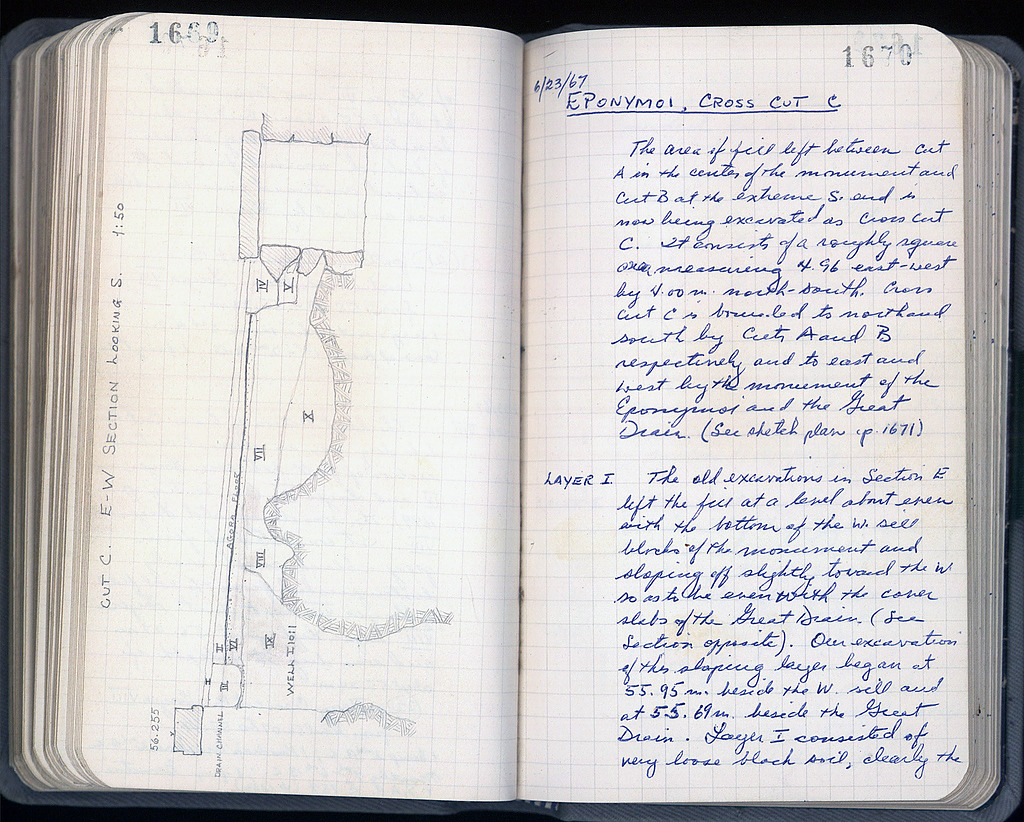 1669
CUT C. E-W SECTION LOOKING S. 1:50
IV
V
X
VII
AGORA FLOOR
VIII
II
VI
IX
WELL I 10:1
I
III
56.255
DRAIN CHANNEL
1670
6/23/67
EPONYMOI, CROSS CUT C
The area of fill left between cut
A in the center of the monument and
Cut B at the extreme S. end is
now being excavated as Cross Cut
C. It consists of a roughly square
area measuring 4.96 east-west
by 4.00 m. north-south. Cross
Cut C is bounded to north and
south by Cuts A and B
respectively and to east and
west by the monument of the
Eponymoi and the Great
Drain. (See sketch plan p. 1671)
LAYER I. The old excavations in Section E
left the fill at a level about even
with the bottom of the W. sill
blocks of the monument and
sloping off slightly toward the W
so as to be even with the cover
slabs of the Great Drain. (See
Section opposite). Our excavation
of this sloping layer began at
55.95 m. beside the W. sill and
at 55.69 m. beside the Great
Drain. Layer I consisted of
very loose black soil, clearly the